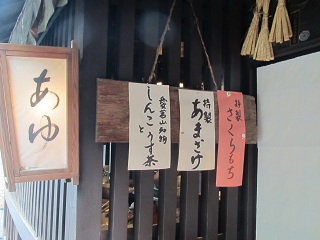 あゆ
愛宕山名物
しんこ
と
うす茶
特製
あまざけ
特製
さくらもち